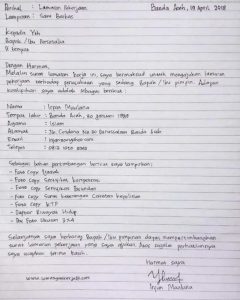 Perihal : Lamaran Pekerjaan Banda Aceh, 19 April 2018
Lampiran : Satu Berkas
Kepada Yth
Bapak / Ibu Personalia
Di tempat
Dengan Hormat,
Melalui surat lamaran kerja ini, saya bermaksud untuk mengajukan lamaran
pekerjaan terhadap perusahaan yang sedang Bapak / Ibu pimpin. Adapun
kualifikasi saya adalah sebagai berikut :
Nama : Irfan Maulana
Tempat lahir : Banda Aceh, 20 Januari
Agama : Islam
Alamat : Jln. No 20 Darussalam Banda Aceh
Email
Telpon
Sebagai bahan pertimbangan berikut saya lampirkan :
- Foto copy Ijazah
- Foto copy Sertifikat Kompetensi
- Foto copy Sertifikat
- Foto copy Surat Keterangan Catatan Kepolisian
- Foto copy KTP
- Daftar Riwayat Hidup
- Pas Foto Ukuran 3x4
Selanjutnya saya berharap Bapak / Ibu pimpinan dapat mempertimbangkan
surat lamaran pekerjaan yang saya ajukan. Atas segala perhatiannya
saya ucapkan terima kasih.
Hormat saya
Irfan Maulana